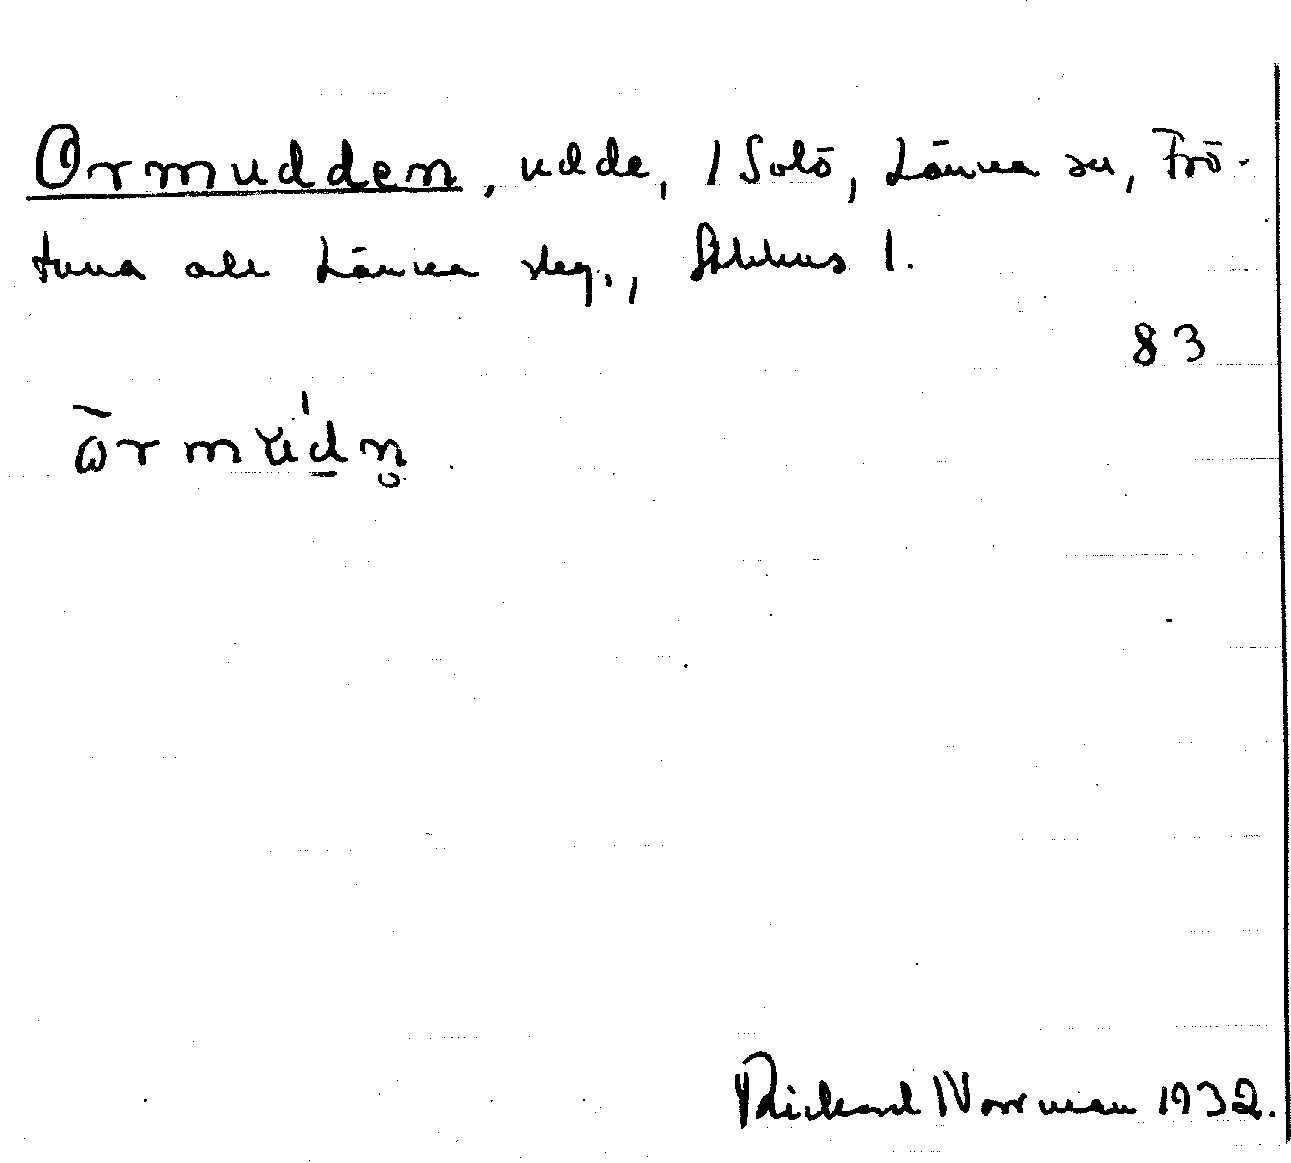 Ormudden, udde, 1 Solö, Länna sn, Frö-
tuna och Länna slg., Sthlms l.
83
Rickard Norrman 1932.